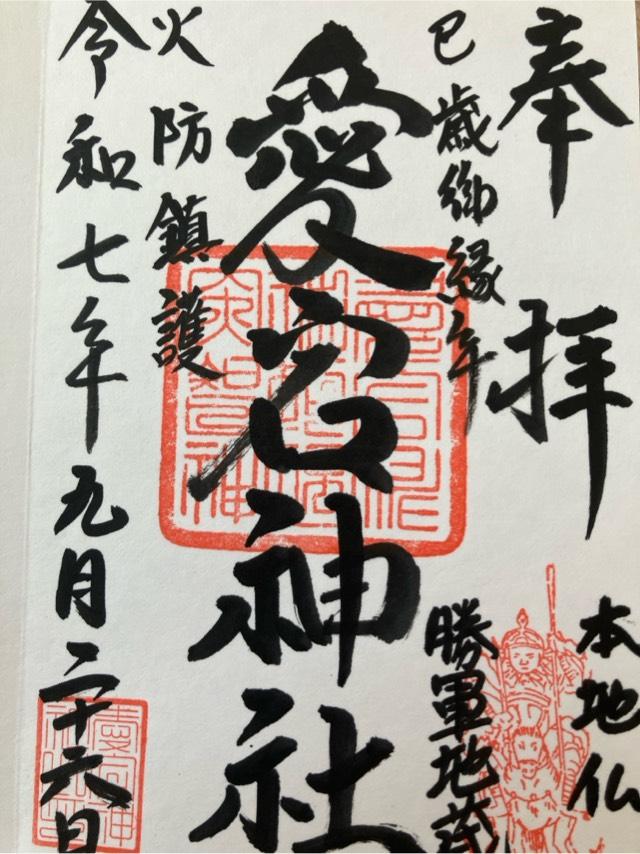 奉拝
本地仏
巳歳御縁年
勝軍地蔵
愛宕神社
火防鎮護
令和七年九月二十六日